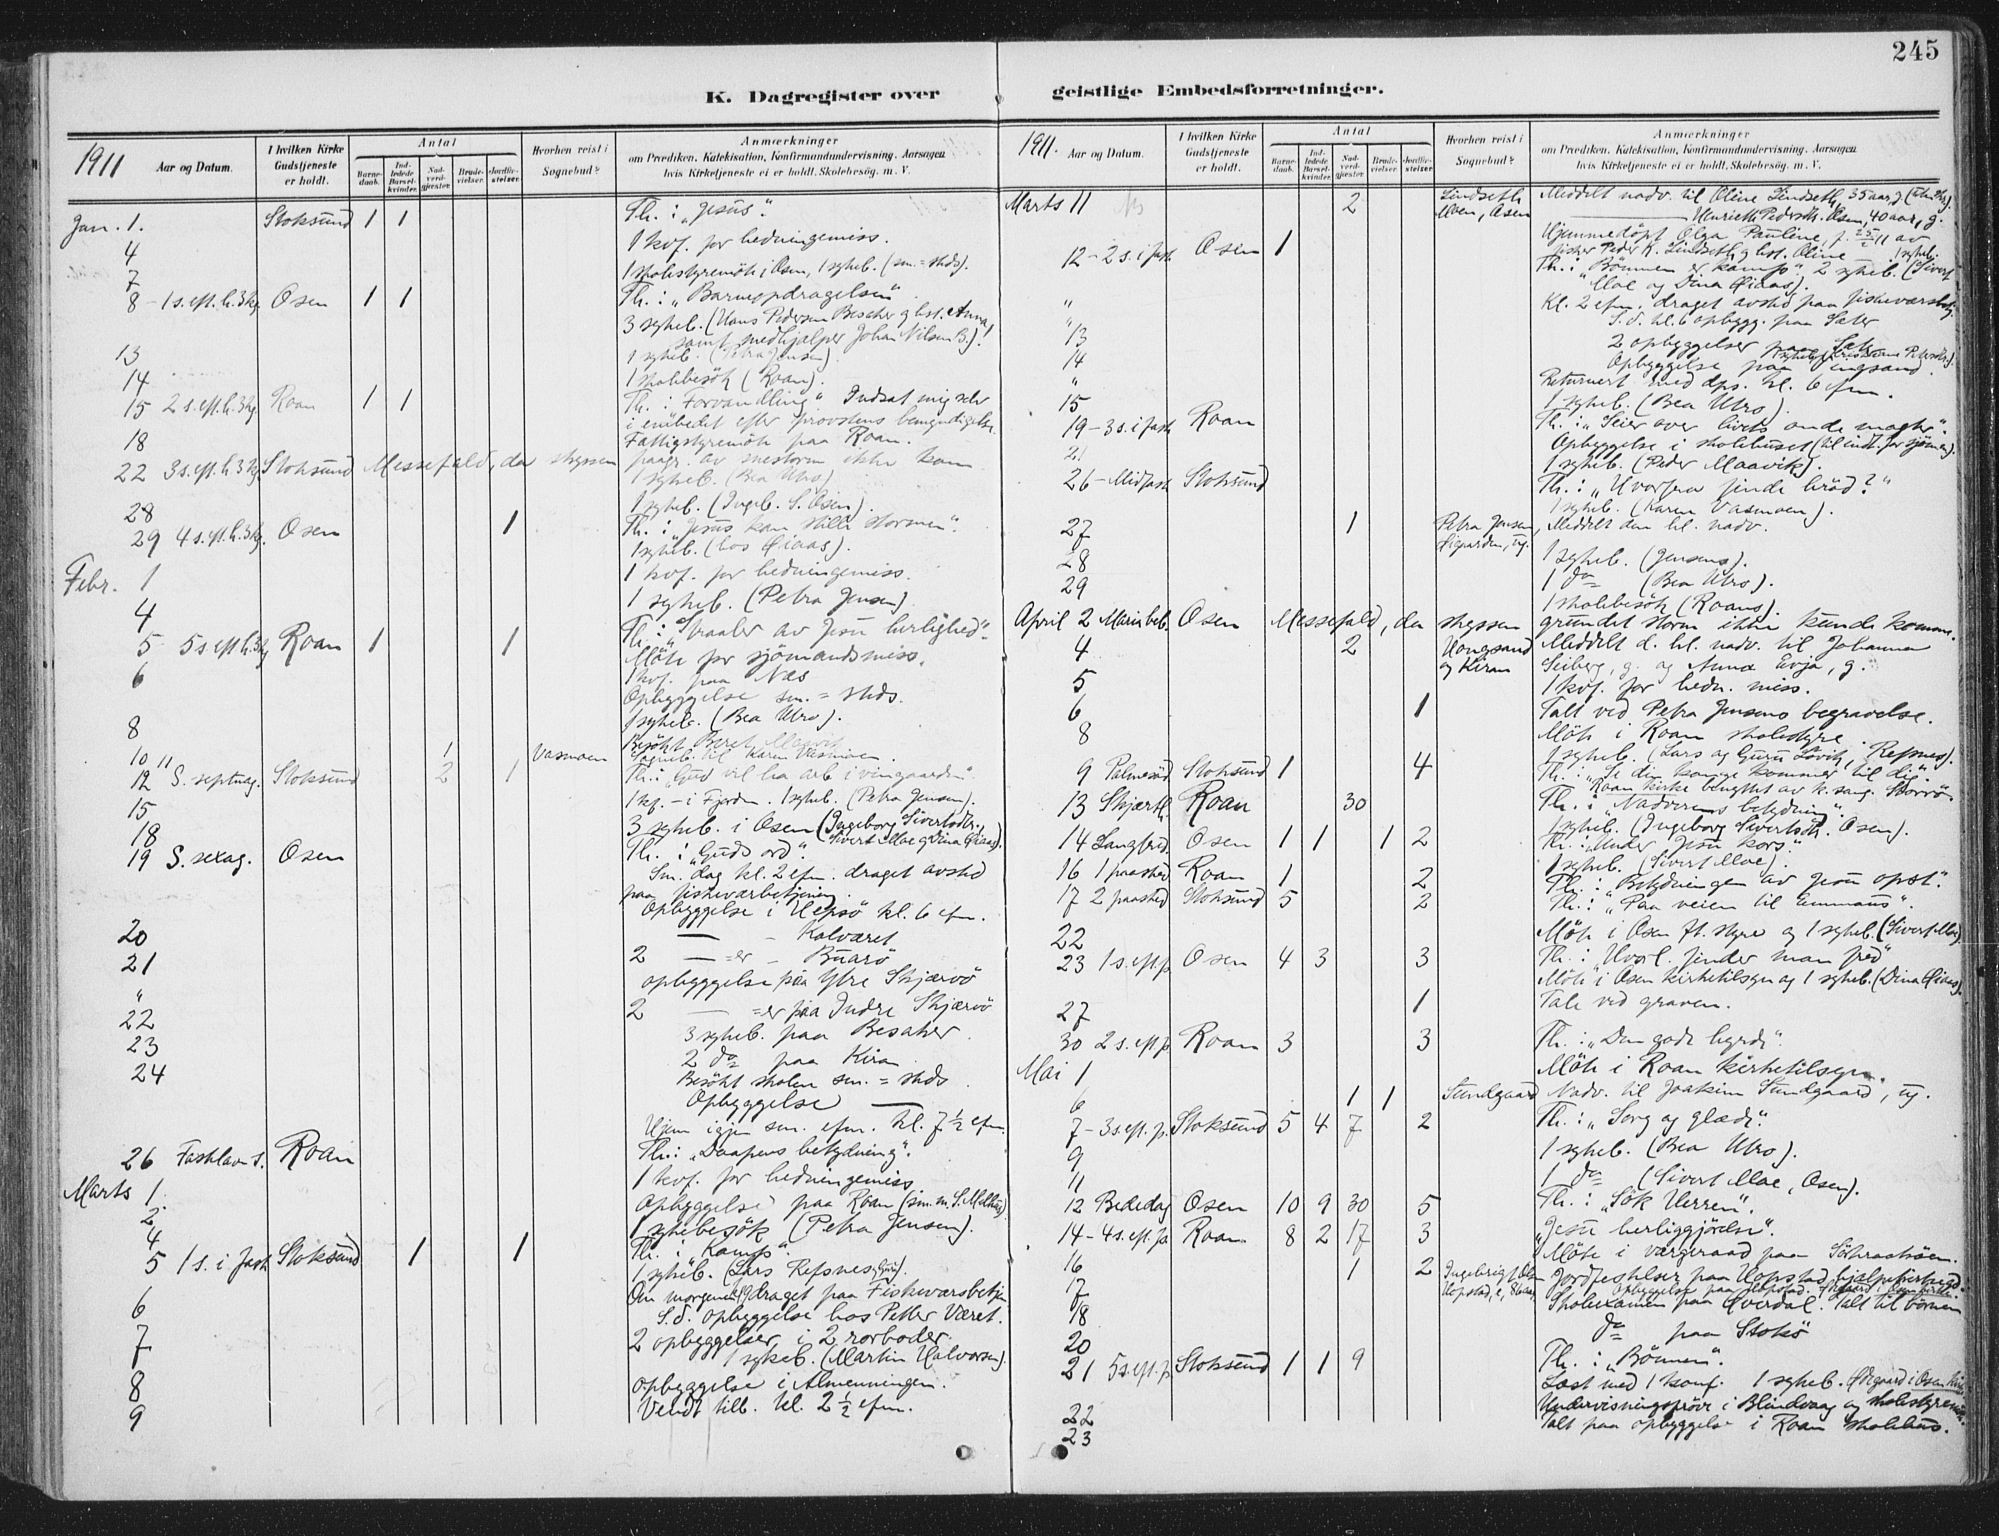 245
K. Dagregister over geistlige Embedsforretninger.
1911 Aar og Datum.
I hvilken Kirke Gudstjeneste er holdt.
Antal
Barnedaab.
Indledede Barselkvinder.
Nadverdgjester
Brudevielser.
Jordfæstelser.
Hvorhen reist i Sognebud?
Anmærkninger
om Prædiken. Katekisation, Konfirmandundervisning. Aarsagen
hvis Kirketjeneste ei er holdt. Skolebesøg. m. V.
Jan. 1. Stoksund 1 1 Th.: "Jesus".
4 1 kvf. for hedningemiss.
7 1 skolestyremöte i Osen, 1 sykeb. (sm. = stds).
8 - 1 s. eft. h. 3 kg. Osen 1 1 Th.: "Barneopdragelsen"
3 sykeb. (Hans Pedersen Besaker g hst. Anna,
samt medhjælper Johan Nilsen B.).
13 1 sykeb. (Petra Jensen).
14 1 skolebesök (Roan).
15 2 s. eft. h. 3 kg. Roan 1 1 Th.: "Forvandling" Indsat mig selv
i embedet efter provstens bemyndigelse.
18 Fattigstyremöte paa Roan.
22 3 s. eft. h. 3 kg. Stoksund Messefald, da skyssen pagr. av snestorm ikke kom
1 sykeb. (Bea Utro)
28 1 sykeb. (Ingeb. S. Osen).
29 4 s. eft. h. 3 kg. Osen 1 Th.: "Jesus kan stille stormen"
1 sykeb. (hos Øiaas).
Febr. 1 1 kvf. for hedningemiss.
4 1 sykeb. (Petra Jensen)
5 5 s. eft. h. 3 kg Roan 1 1 Th.: "Straaler av Jesu herlighed".
Möte for sjömandsmiss.
6 1 kvf. paa Næs
Opbyggelse sm. = stds.
8 1 sykeb. (Bea Utro).
10 Besökt Beret
11 1 Vasmoen Sogneb. til Karen Vasmoen.
12 S. septuag. Stoksund 2 1 Th.: "Gud vil ha arb. i vingaarden".
15 1 kf. - i Fjorden. 1 sykeb. (Petra Jensen).
18 3 sykeb. i Osen (Ingeborg Sivertsdtr.,
Sivert Moe g Dina Øiaas).
19 S. sexag. Osen Th.: "Guds ord".
Sm. dag kl. 2 efm. draget avsted
paa fiskeværbetjening.
Opbyggelse i Hepsö kl. 6 efm.
20 — - Kalværet
21 2 — =er - Buarö
" opbyggelse paa Ytre Skjærvö
22 2 — =er paa Indre Skjærvö
23 3 sykeb. paa Besaker
24 2 do paa Kiran
Besökt skolen sm. = stds
Opbyggelse —
Hjem igjen sm. efm. kl. 7 1/2 efm.
26 Fastelavns s. Roan Th.: "Daapens betydning".
Marts 1. 1 kvf. for hedningemiss
2 Opbyggelse paa Roan (sm. m. S. Melhus).
4 1 sykebesök (Petra Jensen).
5 1 s. i fast. Stoksund 1 1 Th.: "Kamp".
1 sykeb. (Lars Refsnes, Guri).
6 Om morgenen draget paa Fiskeværsbetj.
S. d. opbyggelse hos Petter Været.
7 2 opbyggelser i 2 rorboder.
1 sykeb. (Martin Halvorsen).
8 opbyggelse i Almenningen.
9 Vendt tilb. kl. 2 1/2 efm.
1911. Aar og Datum.
I hvilken Kirke Gudstjeneste er holdt.
Antal
Barnedaab.
Indledede Barselkvinder.
Nadverdgjester
Brudevielser.
Jordfæstelser.
Hvorhen reist i Sognebud?
Anmærkninger
om Prædiken. Katekisation, Konfirmandundervisning. Aarsagen
hvis Kirketjeneste ei er holdt. Skolebesøg. m. V.
Marts 11 2 Lindseth Meddelt nadv. til Oline Lindseth, 35 aar, g.
Moen, Osen — Henriette Pedersdtr. Osen, 40 aar, g.
Hjemmedöpt Olga Pauline, f. 25/2 11 av
fisker Peder K. Lindseth g hst. Oline — 1 sykeb.
12 - 2 s. i fast. Osen 1 Th.: "Bönnen er kamp". 2 sykeb. (Sivert
Moe og Dina Øiaas).
" Kl. 2 efm. draget avsted paa fiskeværsbetj.
" S. d. kl. 6 opbygg. paa Sæter
13 2 opbyggelser paa Sæter
14 Opbyggelse paa
" Returnert med dps. kl. 6 efm.
15 1 sykeb. (Bea Utro).
19 - 3 s. i fast Roan Th.: "Seier over livets onde magter".
21 Opbyggelse i skolehuset (til indt. for sjömm.).
1 sykeb. (Peder Maavik).
26 - Midfast Stoksund Th.: "Hvorfra finde bröd?"
1 sykeb. (Karen Vasmoen).
27 1 Petra Jensen, Meddelt den hl. nadv.
ug.
28 1 sykeb. (Jensens).
29 1 do (Bea Utro).
1 skolebesök (Roans).
April 2 Mariæ beb. Osen Messefald, da skyssen grundet storm ikke kunde komme.
4 2 Hongsand Meddelt d. hl. nadv. til Johanna
og Kiran Seiberg, g. og Anna Evja, g.
5 1 kvf. for hedn. miss.
6 1 Talt ved Petra Jensens begravelse.
8 Möte i Roan skolestyre.
1 sykeb. (Lars og Guru Lövik, Refsnes).
9 Palmesöd. Stoksund 1 4 Th.: "Se din konge kommer til dig".
Roan kirke benyttet av k. sang. Storrö.
13 Skjærtl. Roan 30 Th.: "Nadverens betydning".
1 sykeb. (Ingeborg Sivertsdtr. Osen).
14 Langfred. Osen 1 1 1 2 Th.: "Under Jesu kors."
1 sykeb. (Sivert Moe).
16 1 paasked Roan 1 2 Th.: "Betydningen av Jesu opst".
17 2 paasked Stoksund 5 2 Th.: "Paa veien til Emmaus".
22 Möte i Osen ft. styre og 1 sykeb. (Sivert Moe).
23 1 s. eft. p. Osen 4 3 3 Th.: Hvorl. finder man fred"
Möte i Osen kirketilsyn og 1 sykeb. (Dina Øiaas).
27 1 Tale ved graven.
30 2 s. eft. p Roan 3 3 Th.: "Den gode hyrde".
Mai 1 Möte i Roan kirketilsyn.
6 1 1 Sundgaard Nadv. til Joakim Sundgaard, ug.
7 - 3 s. eft. p. Stoksund 5 4 7 2 Th.: "Sorg og glæde".
9 1 sykeb. (Bea Utro).
11 1 do (Sivert Moe, Osen).
12 Bededag Osen 10 9 30 5 Th.: "Sök Herren".
14 - 4 s. eft. p. Roan 8 2 17 3 "Jesu herliggjörelse".
16 Möte i værgeraad paa
17 1 2 Jordfestelser paa Hopstad
Hopstad, e,
18 Skoleexamen paa Hverdal. Talt til börnene
20 do paa Stokö
21 5 s. eft. p. Stoksund 1 1 9 Th.: "Bönnen".
Læst med 1 konf. 1 sykeb. Ødegaard i Osen
22 Undervisningspröve i Blindvaag og skolestyremöte.
23 Talt paa opbyggelse i Roan skolehus.